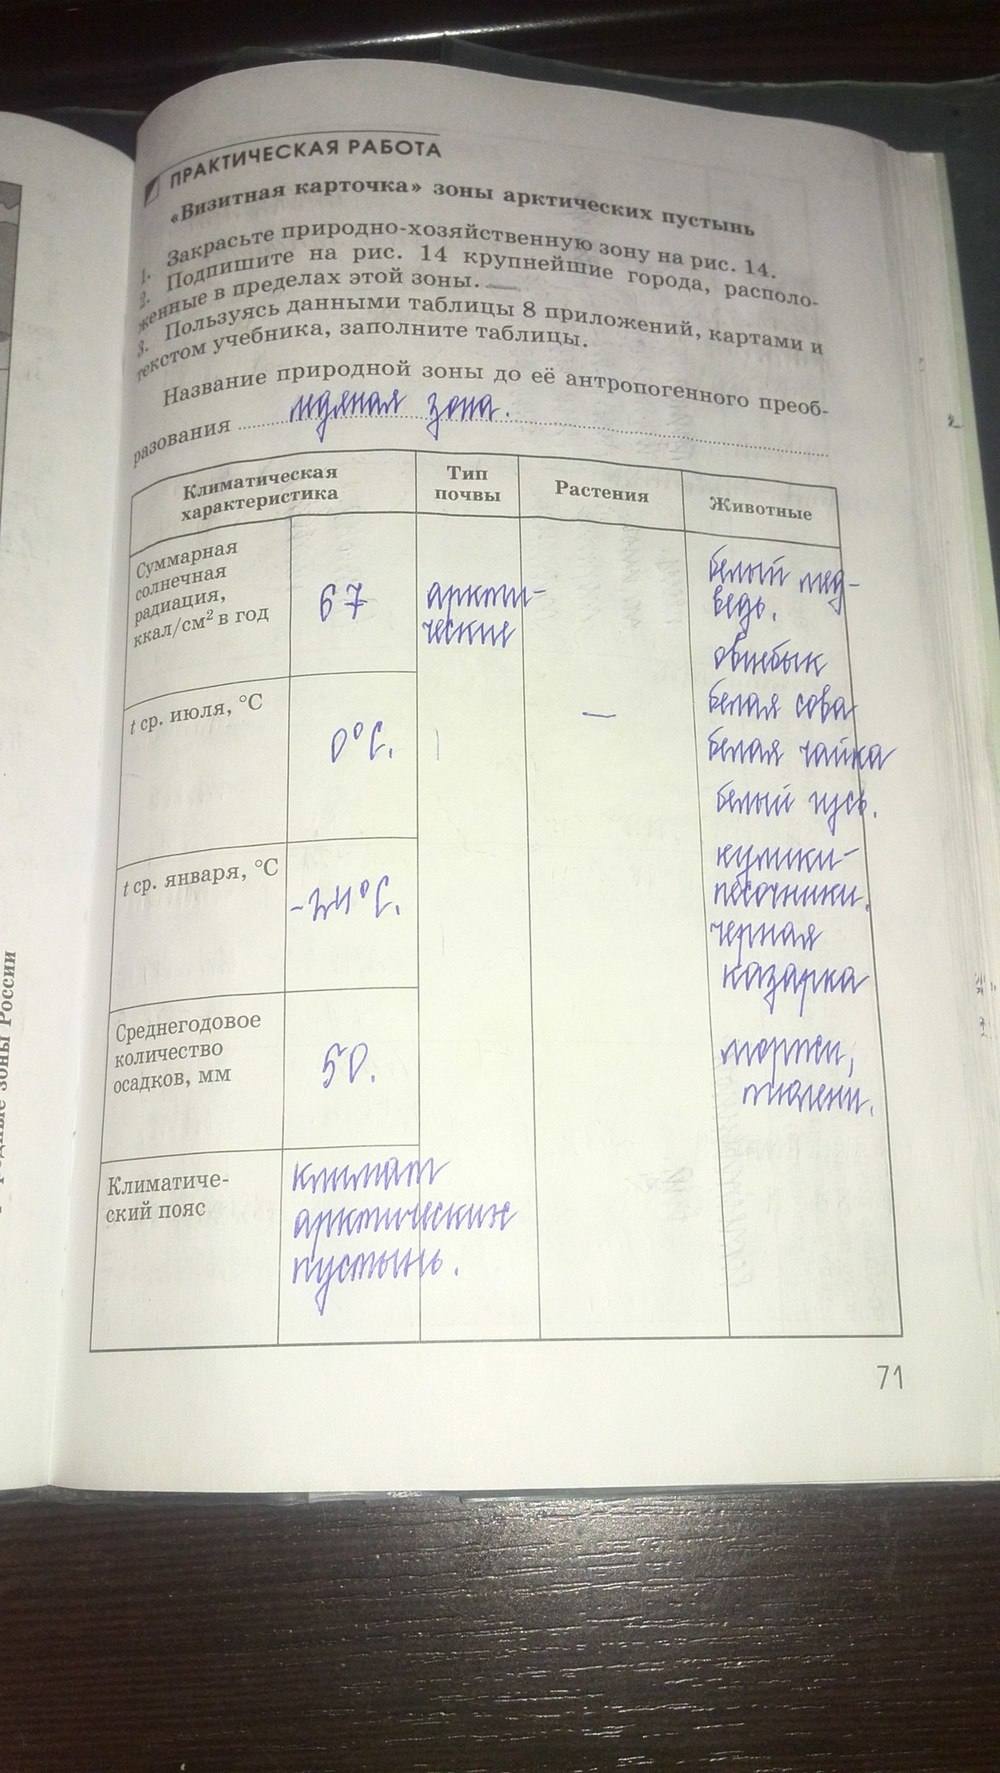 ПРАКТИЧЕСКАЯ РАБОТА
«Визитная карточка» зоны арктических пустынь
1. Закрасьте природно-хозяйственную зону на рис. 14.
2. Подпишите на рис. 14 крупнейшие города, располо-
женные в пределах этой зоны.
3. Пользуясь данными таблицы 8 приложений, картами и
текстом учебника, заполните таблицы.
Название природной зоны до её антропогенного преоб-
разования ледяная зона.
Климатическая
характеристика
Тип
почвы
Растения
Животные
Суммарная
солнечная
радиация,
ккал/см² в год
67
аркти-
ческие
—
белый мед-
ведь.
овцебык
белая сова
белая чайка
белый гусь.
кулики-
песочники.
черная
казарка
моржи,
тюлени.
t ср. июля, °С
0°С.
t ср. января, °С
-24°С.
Среднегодовое
количество
осадков, мм
50.
Климатиче-
ский пояс
климат
арктических
пустынь.
71
зоны России